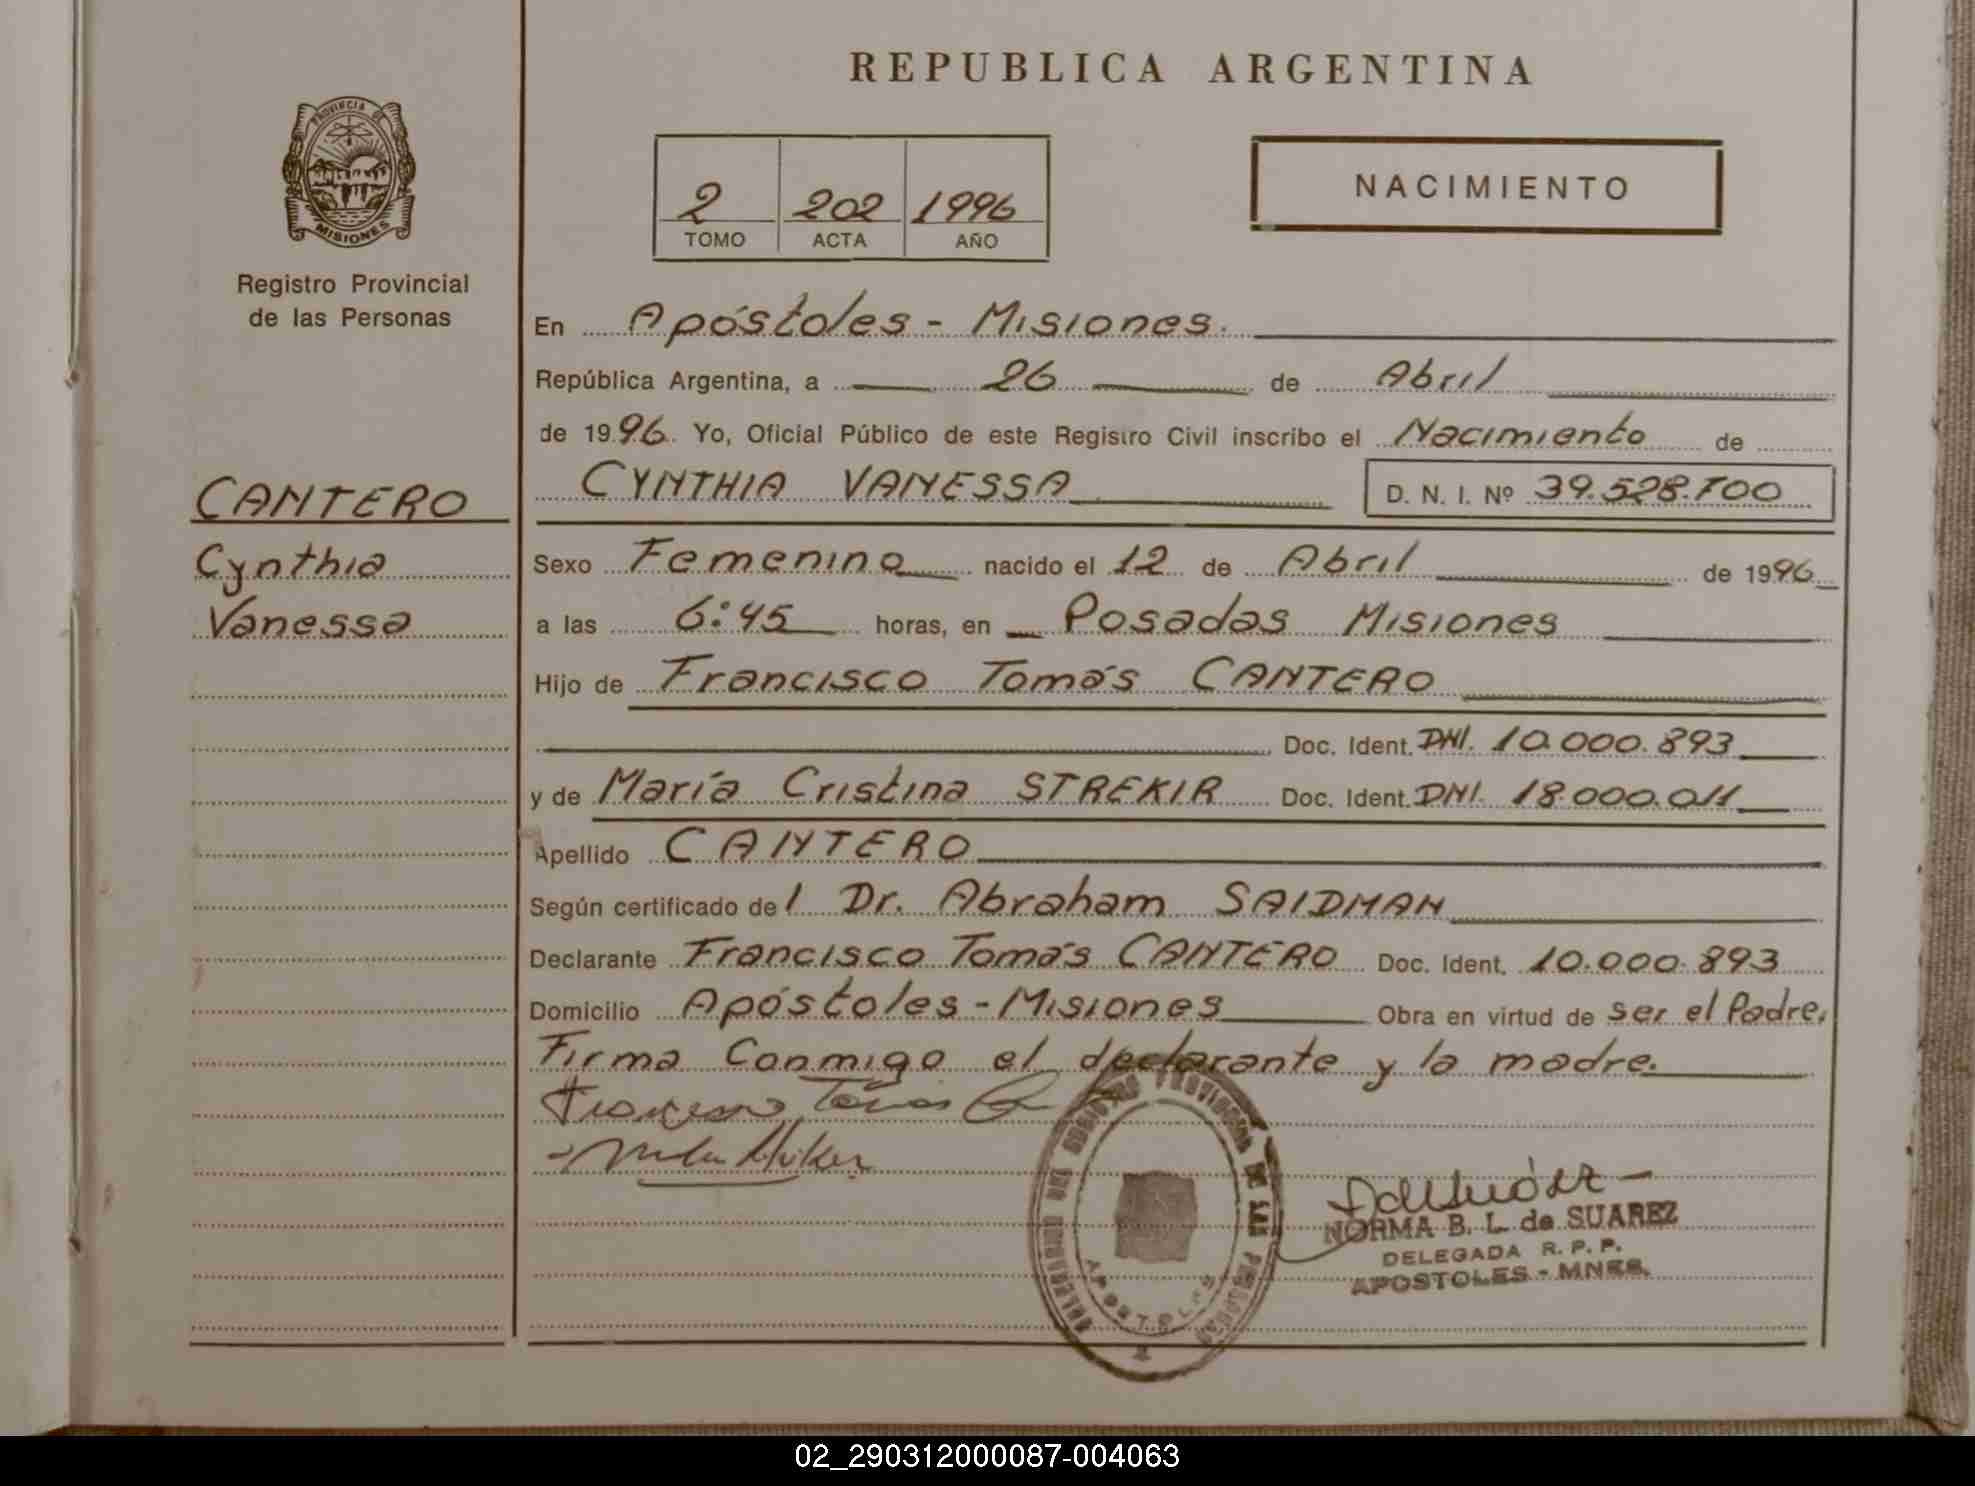 REPUBLICA ARGENTINA
PROVINCIA DE
MISIONES
Registro Provincial
de las Personas
2 202 1996
TOMO ACTA AÑO
NACIMIENTO
En Apóstoles - Misiones.
República Argentina, a 26 de Abril
de 1996. Yo, Oficial Público de este Registro Civil inscribo el Nacimiento de
CYNTHIA VANESSA D. N. I. Nº 39.528.700
CANTERO
Cynthia
Vanessa
Sexo Femenino nacido el 12 de Abril de 1996
a las 6:45 horas, en Posadas Misiones
Hijo de Francisco Tomás CANTERO
Doc. Ident. DNI. 10.000.893
y de María Cristina STREKIR Doc. Ident. DNI. 18.000.011
Apellido CANTERO
Según certificado del Dr. Abraham SAIDMAN
Declarante Francisco Tomás CANTERO Doc. Ident. 10.000.893
Domicilio Apóstoles - Misiones Obra en virtud de ser el Padre.
Firma Conmigo el declarante y la madre.
PROVINCIAL DE LAS PERSONAS
APOSTOLES
NORMA B. L. de SUAREZ
DELEGADA R. P. P.
APOSTOLES - MNES.
02_290312000087-004063